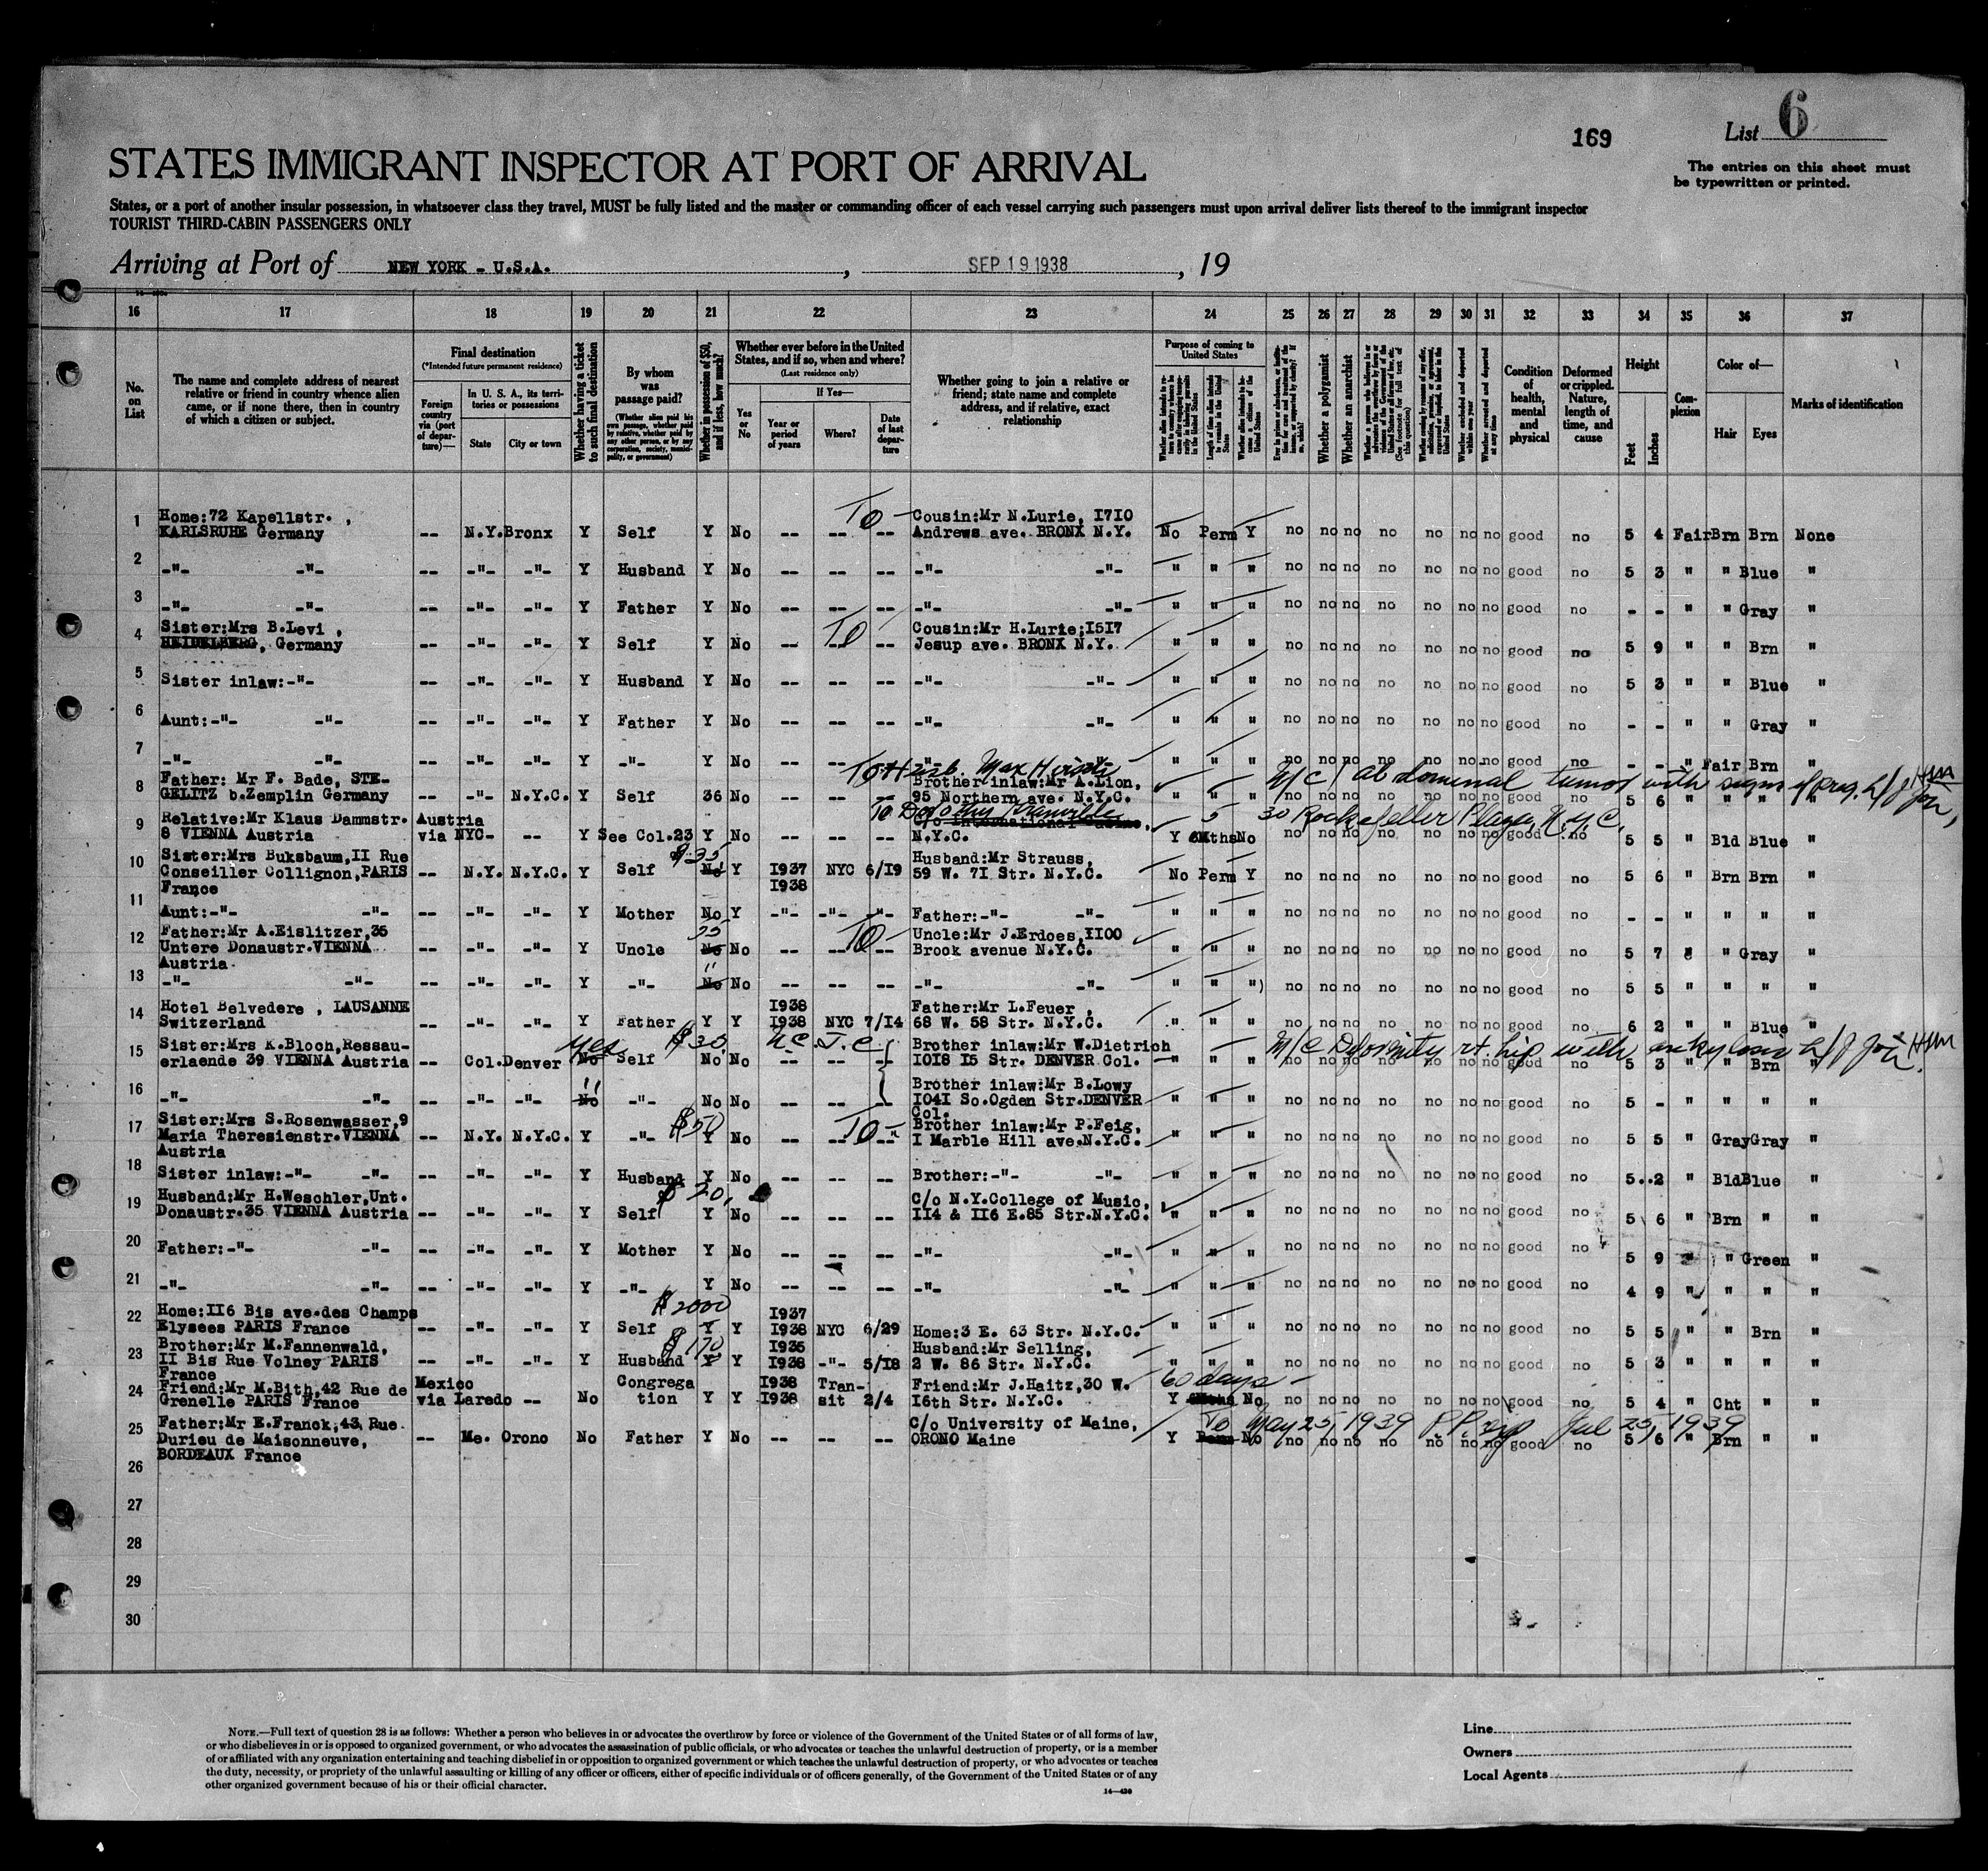 169
List 6
The entries on this sheet must
be typewritten or printed.
STATES IMMIGRANT INSPECTOR AT PORT OF ARRIVAL
States, or a port of another insular possession, in whatsoever class they travel, MUST be fully listed and the master or commanding officer of each vessel carrying such passengers must upon arrival deliver lists thereof to the immigrant inspector
TOURIST THIRD-CABIN PASSENGERS ONLY
Arriving at Port of NEW YORK - U.S.A. , SEP 19 1938 , 19
16 17 18 19 20 21 22 23 24 25 26 27 28 29 30 31 32 33 34 35 36 37
No. on List
The name and complete address of nearest relative or friend in country whence alien came, or if none there, then in country of which a citizen or subject.
Final destination
(*Intended future permanent residence)
Foreign country via (port of departure)—
In U. S. A., its territories or possessions
State
City or town
Whether having a ticket to such final destination
By whom was passage paid?
(Whether alien paid his own passage, whether paid by relative, whether paid by any other person, or by any corporation, society, municipality, or government)
Whether in possession of $50, and if less, how much?
Whether ever before in the United States, and if so, when and where?
(Last residence only)
Yes or No
If Yes—
Year or period of years
Where?
Date of last departure
Whether going to join a relative or friend; state name and complete address, and if relative, exact relationship
Purpose of coming to United States
Length of time alien intends to remain in the United States
Whether a polygamist
Whether an anarchist
Condition of health, mental and physical
Deformed or crippled. Nature, length of time, and cause
Height
Feet
Inches
Complexion
Color of—
Hair
Eyes
Marks of identification
1 Home:72 Kapellstr. , To Cousin:Mr N.Lurie, 1710
KARLSRUHE Germany -- N.Y. Bronx Y Self Y No -- -- -- Andrews ave. BRONX N.Y. No Perm Y no no no no no no no good no 5 4 Fair Brn Brn None
2 -"- -"- -- -"- -"- Y Husband Y No -- -- -- -"- -"- " " " no no no no no no no good no 5 3 " " Blue "
3 -"- -"- -- -"- -"- Y Father Y No -- -- -- -"- -"- " " " no no no no no no no good no - - " " Gray "
4 Sister:Mrs B.Levi , To Cousin:Mr H.Lurie;1517
HEIDELBERG, Germany -- -"- -"- Y Self Y No -- -- -- Jesup ave. BRONX N.Y. " " " no no no no no no no good no 5 9 " " Brn "
5 Sister inlaw:-"- -- -"- -"- Y Husband Y No -- -- -- -"- -"- " " " no no no no no no no good no 5 3 " " Blue "
6 Aunt:-"- -"- -- -"- -"- Y Father Y No -- -- -- -"- -"- " " " no no no no no no no good no - - " " Gray "
7 -"- -"- -- -"- -"- Y -"- Y No -- -- -- -"- " " " no no no no no no no good no - - " Fair Brn "
8 Father: Mr F. Bade, STE- To Husb. Max Brother inlaw:Mr A.Lion, M/C abdominal tumor with signs of preg.
GELITZ b.Zemplin Germany -- -"- N.Y.C. Y Self 36 No -- -- -- 95 Northern ave. N.Y.C. " " " no no no no no no no good no 5 6 " " " "
9 Relative:Mr Klaus Dammstr. Austria To Dorothy 5 30 Rockefeller Plaza, N.Y.C.
8 VIENNA Austria via NYC- -- Y See Col.23 Y No -- -- -- N.Y.C. Y 6Mths No no no no no no no no good no 5 5 " Bld Blue "
10 Sister:Mrs Buksbaum,II Rue $35 Husband:Mr Strauss,
Conseiller Collignon,PARIS -- N.Y. N.Y.C. Y Self No Y 1937 NYC 6/19 59 W. 71 Str. N.Y.C. No Perm Y no no no no no no no good no 5 6 " Brn Brn "
France 1938
11 Aunt:-"- -"- -- -"- -"- Y Mother No Y -"- -"- -"- Father:-"- -"- " " " no no no no no no no good no - - " " " "
12 Father:Mr A.Eislitzer,35 To Uncle:Mr J.Erdoes,1100
Untere Donaustr.VIENNA -- -"- -"- Y Uncle No No -- -- -- Brook avenue N.Y.C. " " " no no no no no no no good no 5 7 " " Gray "
Austria
13 -"- -"- -- -"- -"- Y -"- No No -- -- -- -"- -"- " " " no no no no no no no good no 5 5 " " " "
14 Hotel Belvedere , LAUSANNE 1938 Father:Mr L.Feuer ,
Switzerland -- -"- -"- Y Father Y Y 1938 NYC 7/14 68 W. 58 Str. N.Y.C. " " " no no no no no no no good no 6 2 " " Blue "
15 Sister:Mrs K.Bloch,Ressau- yes $30 Brother inlaw:Mr W.Dietrich M/C Deformity rt hip with ankylosis
erlaende 39 VIENNA Austria -- Col.Denver No Self No No -- -- -- 1018 15 Str. DENVER Col. " " " no no no no no no no good no 5 3 " " Brn "
16 -"- -"- -- -"- -"- No -"- No No -- -- -- Brother inlaw:Mr B.Lowy
1041 So.Ogden Str.DENVER " " " no no no no no no no good no 5 - " " " "
Col.
17 Sister:Mrs S.Rosenwasser,9 $50 To Brother inlaw:Mr P.Feig,
Maria Theresienstr.VIENNA -- N.Y. N.Y.C. Y -"- Y No -- -- -- I Marble Hill ave.N.Y.C. " " " no no no no no no no good no 5 5 " Gray Gray "
Austria
18 Sister inlaw:-"- -"- -- -"- -"- Y Husband Y No -- -- -- Brother:-"- -"- " " " no no no no no no no good no 5..2 " Bld Blue "
19 Husband:Mr H.Weschler,Unt. $ 20, C/o N.Y.College of Music,
Donaustr.35 VIENNA Austria -- -"- -"- Y Self Y No -- -- -- 114 & 116 E.85 Str.N.Y.C. " " " no no no no no no no good no 5 6 " Brn " "
20 Father:-"- -"- -- -"- -"- Y Mother Y No -- -- -- -"- -"- " " " no no no no no no no good no 5 9 " " Green "
21 -"- -"- -- -"- -"- Y -"- Y No -- -- -- -"- -"- " " " no no no no no no no good no 4 9 " " " "
22 Home:116 Bis ave.des Champs $2000 1937
Elysees PARIS France -- -"- -"- Y Self Y Y 1938 NYC 6/29 Home:3 E. 63 Str. N.Y.C. " " " no no no no no no no good no 5 5 " " Brn "
23 Brother:Mr M.Fannenwald, $170 1935 Husband:Mr Selling,
II Bis Rue Volney PARIS -- -"- -"- Y Husband Y Y 1938 -"- 5/18 2 W. 86 Str. N.Y.C. " " " no no no no no no no good no 5 3 " " " "
France
24 Friend:Mr M.Bith,42 Rue de Mexico Congrega 1938 Tran- Friend:Mr J.Haitz,30 W. 60 days
Grenelle PARIS France via Laredo -- No tion Y Y 1938 sit 2/4 16th Str. N.Y.C. Y No no no no no no no no good no 5 4 " Cht " "
25 Father:Mr E.Franck,43, Rue C/o University of Maine, To May 25, 1939 P.P. exp Jul 25, 1939
Durieu de Maisonneuve, -- Me. Orono No Father Y No -- -- -- ORONO Maine Y No no no no no no no no good no 5 6 " Brn " "
BORDEAUX France
26
27
28
29
30
NOTE.—Full text of question 28 is as follows: Whether a person who believes in or advocates the overthrow by force or violence of the Government of the United States or of all forms of law,
or who disbelieves in or is opposed to organized government, or who advocates the assassination of public officials, or who advocates or teaches the unlawful destruction of property, or is a member
of or affiliated with any organization entertaining and teaching disbelief in or opposition to organized government or which teaches the unlawful destruction of property, or who advocates or teaches
the duty, necessity, or propriety of the unlawful assaulting or killing of any officer or officers, either of specific individuals or of officers generally, of the Government of the United States or of any
other organized government because of his or their official character.
14—430
Line
Owners
Local Agents